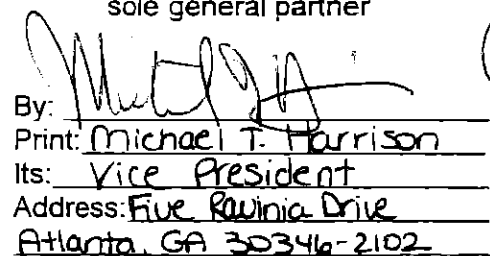 sole general partner
By:
Print: Michael T. Harrison
Its: Vice President
Address: Five Ravinia Drive
Atlanta, GA 30346-2102